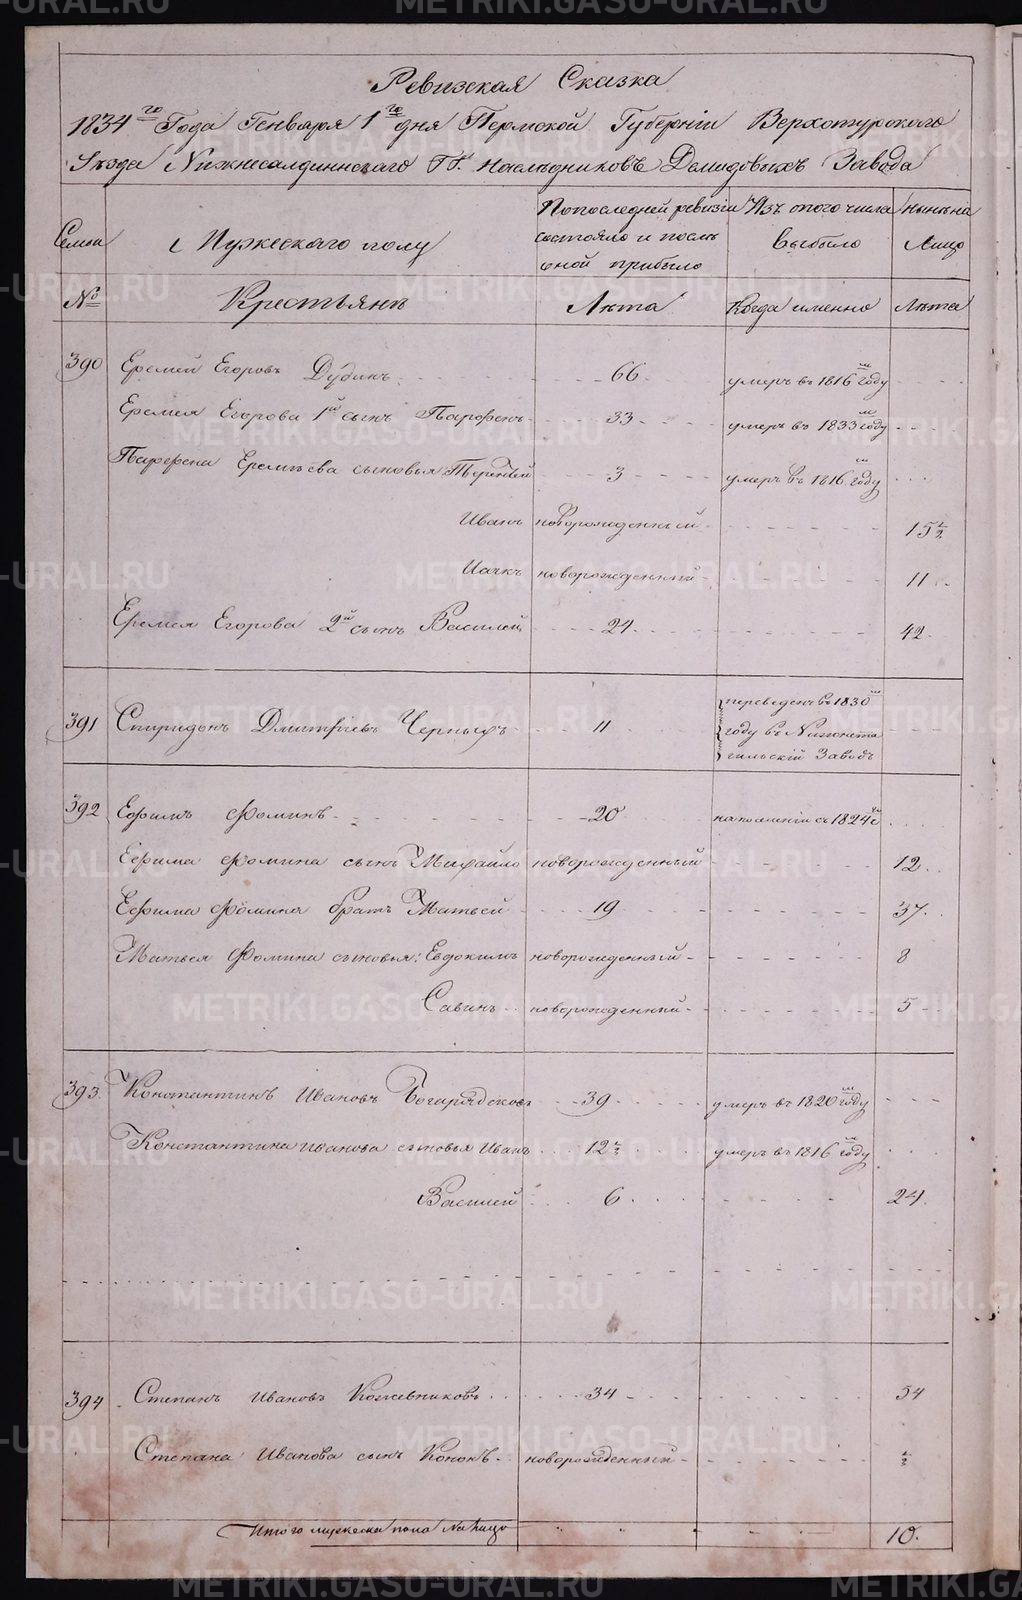 Ревизская Сказка
1834го Года Генваря 1го дня Пермской Губерніи Верхотурского
Уѣзда Нижнесалдинского ГГ. Наслѣдниковъ Демидовыхъ Завода
Семьи
Мужескаго полу
По последней ревизіи состояло и послѣ оной прибыло
Изъ того числа выбыло
Нынѣ на Лицо
№
Крестьянъ
Лѣта
Когда именно
Лѣта
390 Еремей Егоровъ Дудинъ 66 умеръ въ 1816м году
Еремея Егорова 1й сынъ Парфенъ 33 умеръ въ 1833м году
Парфена Еремѣева сыновья Терентей 3 умеръ въ 1816м году
Иванъ новорожденный 15½
Исакъ новорожденный 11
Еремея Егорова 2й сынъ Василей 24 42
391 Спиридонъ Дмитріевъ Черныхъ 11 переведенъ въ 1830м году въ Нижнетагильскій Заводъ
392 Ефимъ Фоминъ 20 на поселеніи съ 1824го
Ефима Фомина сынъ Михайло новорожденный 12
Ефима Фомина братъ Матвей 19 37
Матвея Фомина сыновья: Евдокимъ новорожденный 8
Савинъ новорожденный 5
393 Константинъ Ивановъ 39 умеръ въ 1820м году
Константина Иванова сыновья Иванъ 12½ умеръ въ 1816м году
Василей 6 24
394 Степанъ Ивановъ Кожевниковъ 34 34
Степана Иванова сынъ Кононъ новорожденный ½
Итого мужеска пола На лицо 10.
METRIKI.GASO-URAL.RU